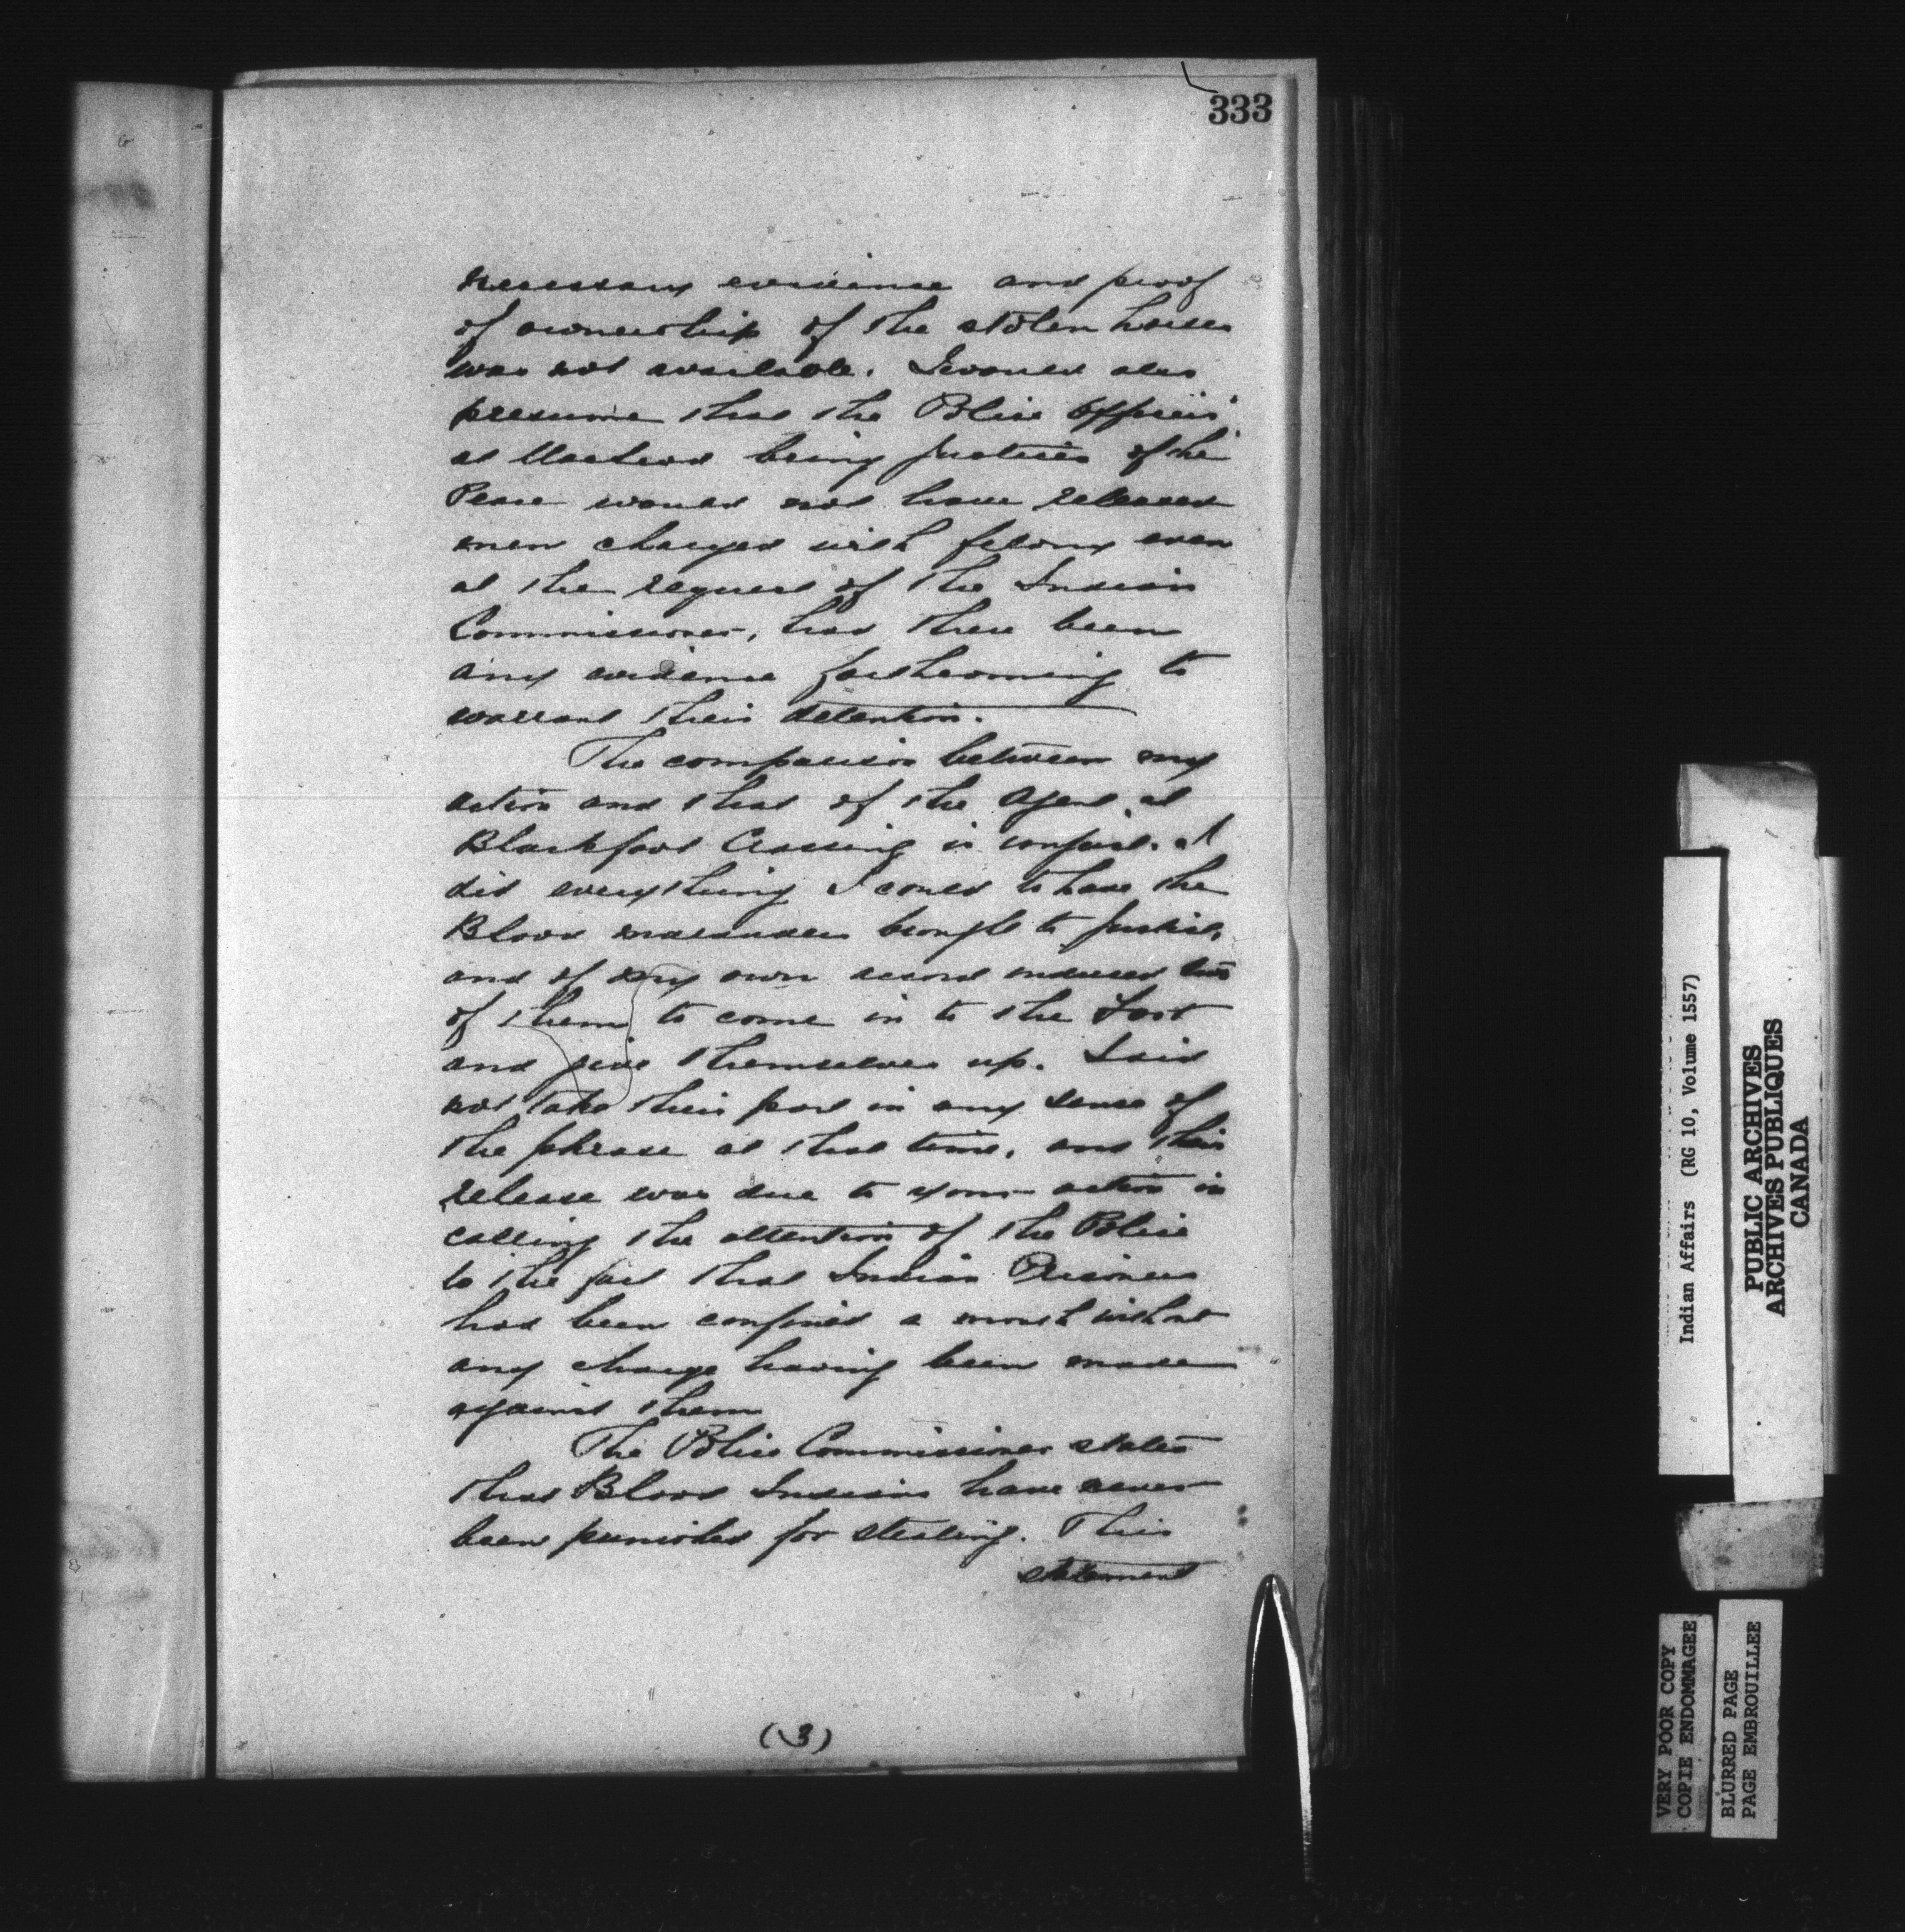 333
necessary evidence and proof
of ownership of the stolen horses
was not available. I would also
presume that the Police Officers
at Macleod being Justices of the
Peace would not have released
men charged with felony even
at the request of the Indian
Commissioner, had there been
any evidence forthcoming to
warrant their detention.
The comparison between my
action and that of the Agent at
Blackfoot Crossing is unfair. I
did everything I could to have the
Blood marauders brought to justice,
and of my own accord induced two
of them to come in to the Fort
and give themselves up. I did
not take their part in any sense of
the phrase at that time, and their
release was due to your action in
calling the attention of the Police
to the fact that Indian Prisoners
had been confined a month without
any charge having been made
against them
The Police Commissioner states
that Blood Indians have never
been punished for stealing. This
statement
(3)
Indian Affairs (RG 10, Volume 1557)
PUBLIC ARCHIVES
ARCHIVES PUBLIQUES
CANADA
VERY POOR COPY
COPIE ENDOMMAGEE
BLURRED PAGE
PAGE EMBROUILLEE